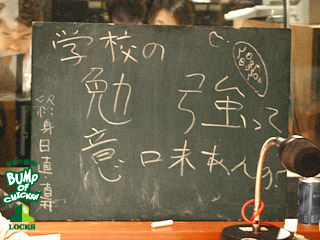 学校の
勉強って
意味あんの?
終身日直・直井
BUMP
OF
CHICKEN
LOCKS